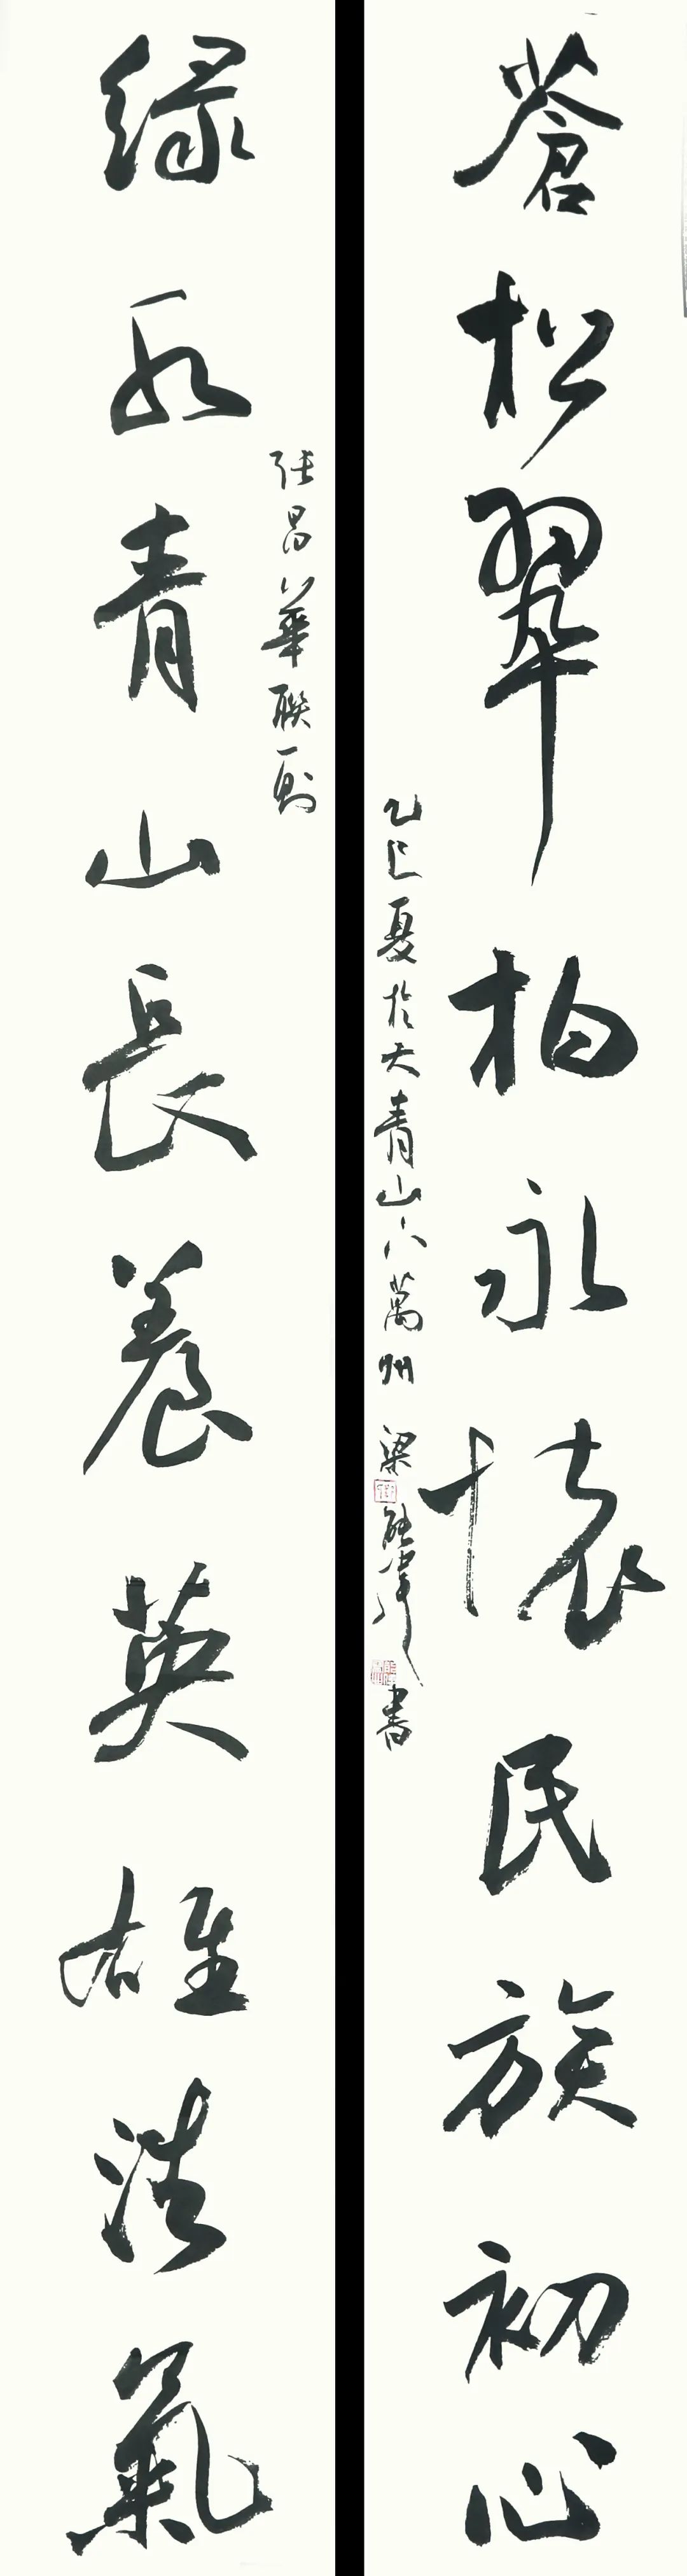 蒼松翠柏永懷民族初心
綠水青山長養英雄浩氣
張昌華聯一則
乙巳夏於大青山下萬州
梁
書